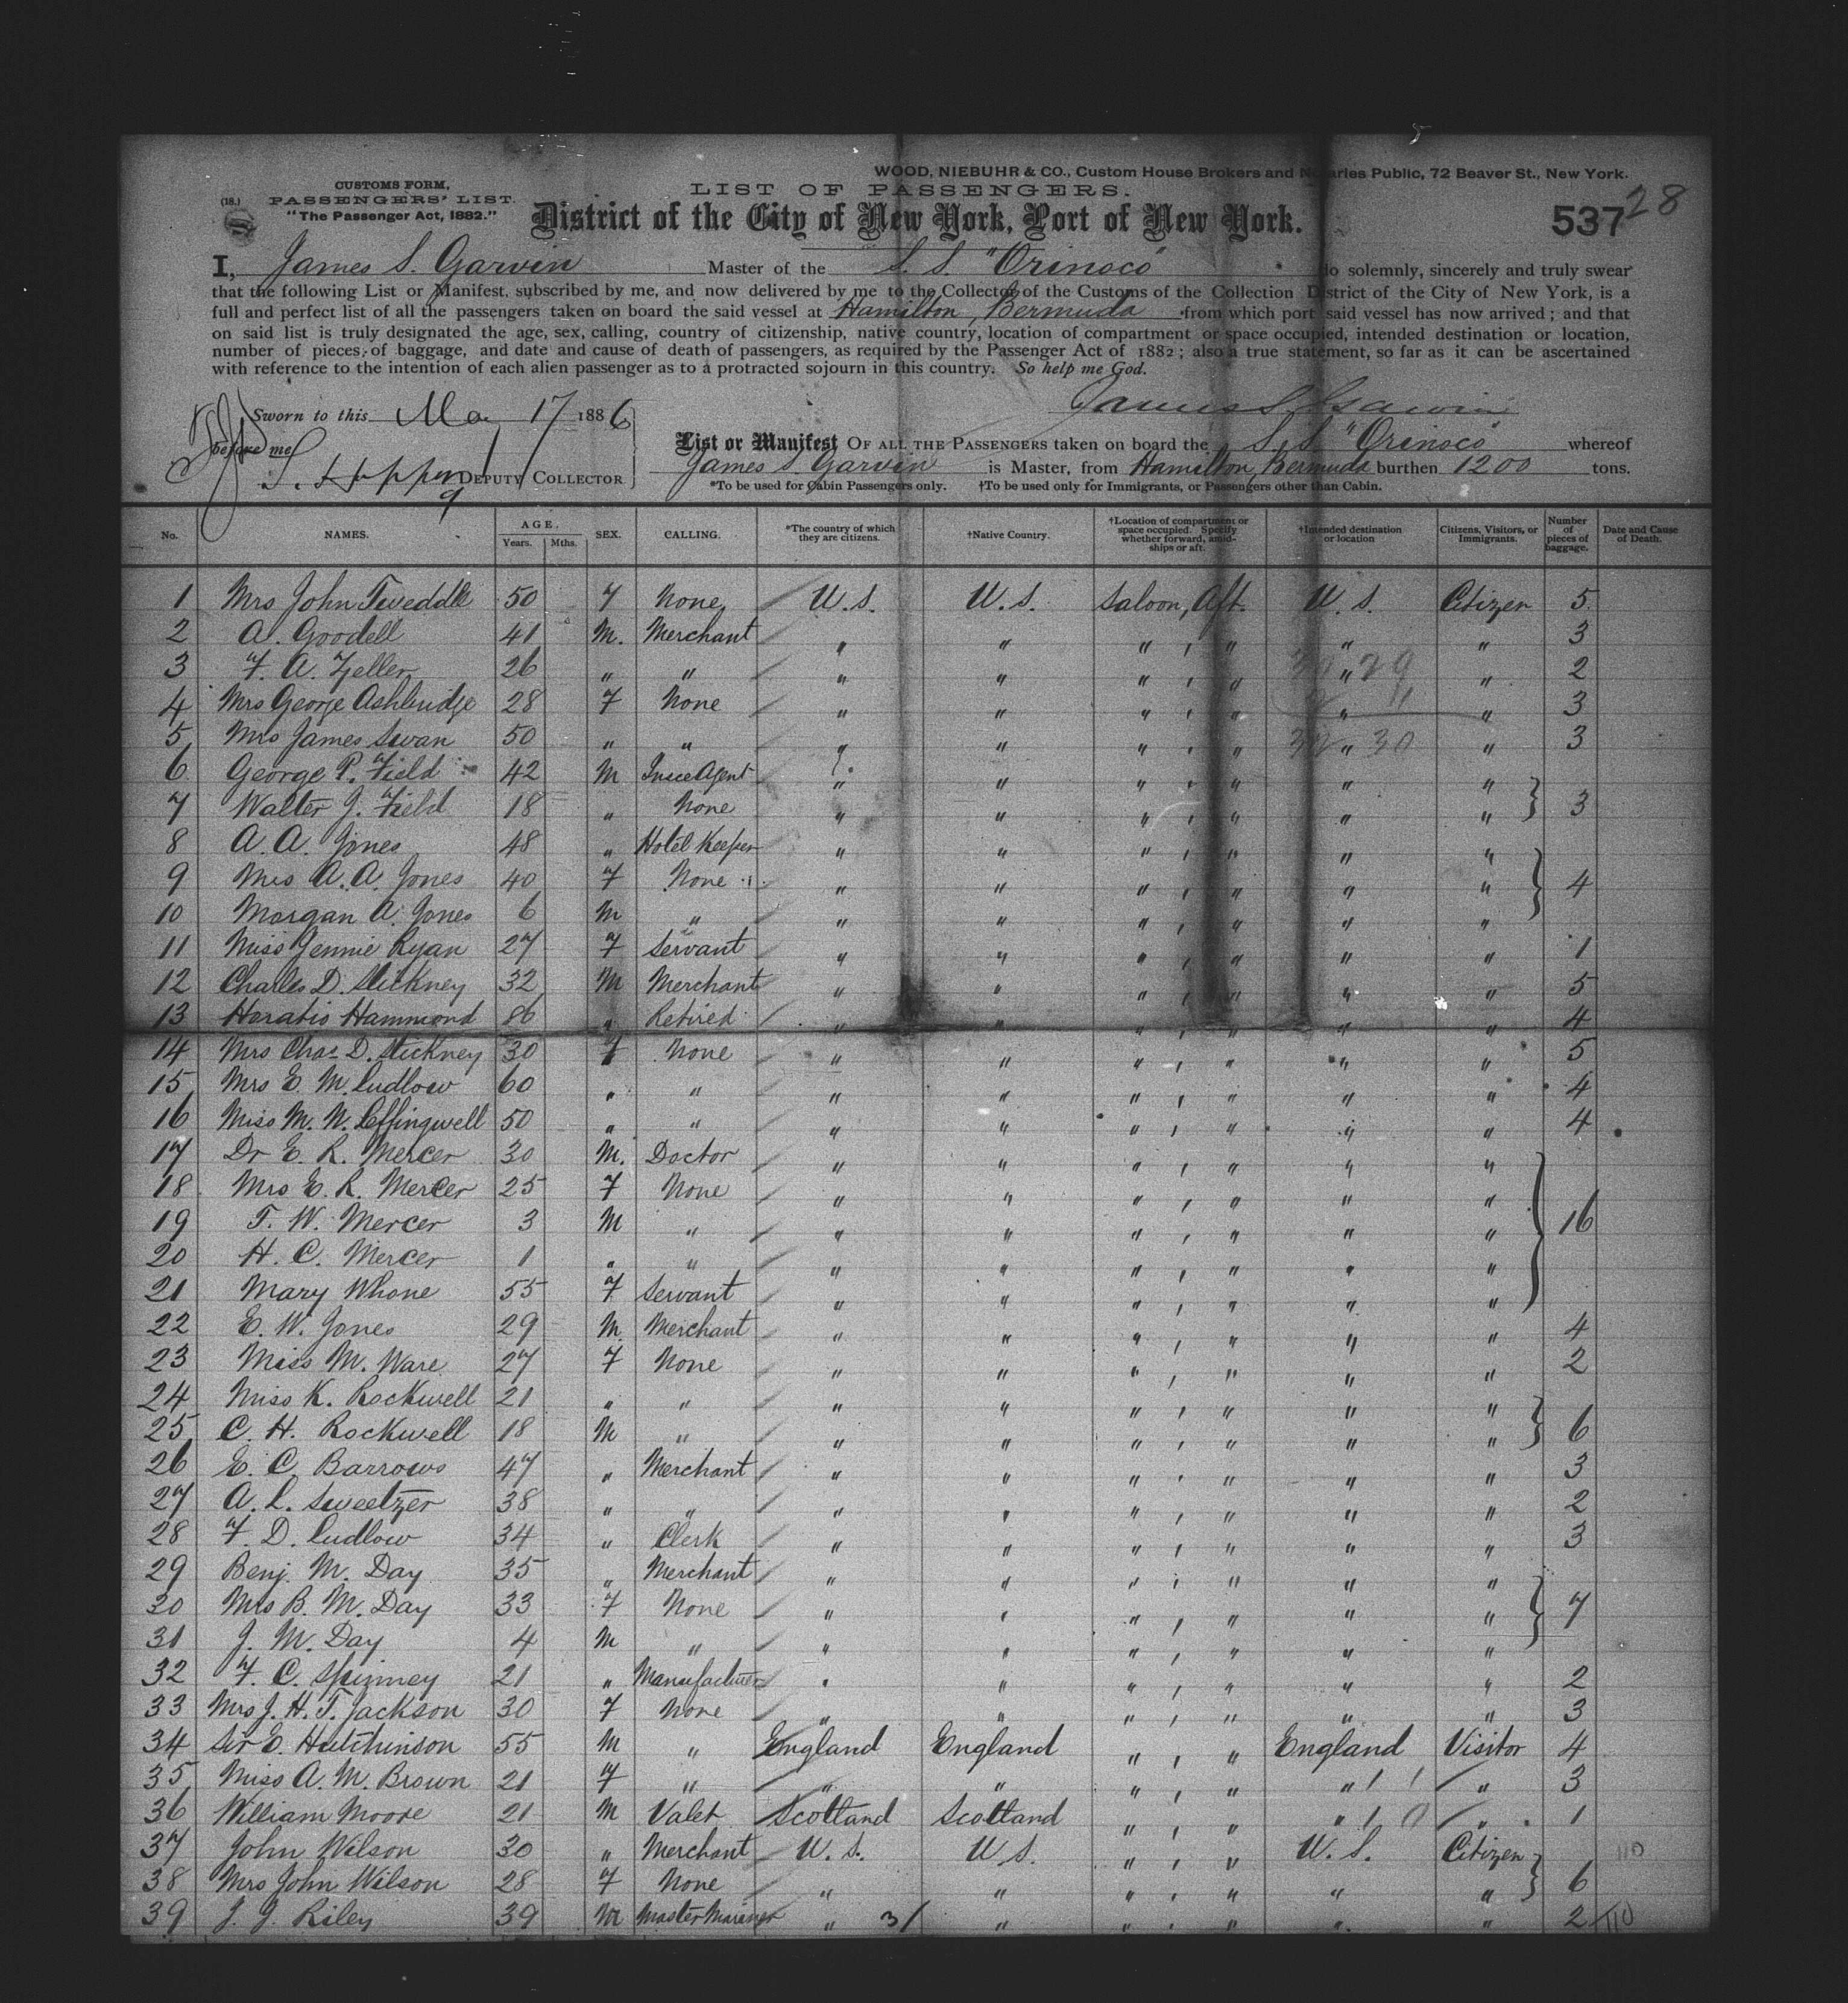 WOOD, NIEBUHR & CO., Custom House Brokers and Notaries Public, 72 Beaver St., New York.
(18.) CUSTOMS FORM, PASSENGERS' LIST. "The Passenger Act, 1882."
LIST OF PASSENGERS.
District of the City of New York, Port of New York. 537 28
I, James S. Garvin Master of the S. S. "Orinoco" do solemnly, sincerely and truly swear
that the following List or Manifest, subscribed by me, and now delivered by me to the Collector of the Customs of the Collection District of the City of New York, is a
full and perfect list of all the passengers taken on board the said vessel at Hamilton, Bermuda from which port said vessel has now arrived; and that
on said list is truly designated the age, sex, calling, country of citizenship, native country, location of compartment or space occupied, intended destination or location,
number of pieces of baggage, and date and cause of death of passengers, as required by the Passenger Act of 1882; also a true statement, so far as it can be ascertained
with reference to the intention of each alien passenger as to a protracted sojourn in this country. So help me God.
James S. Garvin
Sworn to this May 17 1886
before me
DEPUTY COLLECTOR
List or Manifest OF ALL THE PASSENGERS taken on board the S. S. "Orinoco" whereof
James S. Garvin is Master, from Hamilton, Bermuda burthen 1200 tons.
*To be used for Cabin Passengers only. †To be used only for Immigrants, or Passengers other than Cabin.
No. NAMES. AGE. Years. Mths. SEX. CALLING. *The country of which they are citizens. †Native Country. †Location of compartment or space occupied. Specify whether forward, amidships or aft. †Intended destination or location Citizens, Visitors, or Immigrants. Number of pieces of baggage. Date and Cause of Death.
1 Mrs John Tweddle 50 F None U. S. U. S. Saloon, Aft. U. S. Citizen 5
2 A. Goodell 41 M. Merchant " " " , " " " 3
3 F. A. Zeller 26 " " " " " , " " " 2
4 Mrs George Ashbridge 28 F None " " " , " " " 3
5 Mrs James Swan 50 " " " " " , " " " 3
6 George P. Field 42 M Insce Agent " " " , " " "
7 Walter J. Field 18 " None " " " , " " " 3
8 A. A. Jones 48 " Hotel Keeper " " " , " " "
9 Mrs A. A. Jones 40 F None " " " , " " " 4
10 Morgan A. Jones 6 M " " " " , " " "
11 Miss Jennie Ryan 27 F Servant " " " , " " " 1
12 Charles D. Stickney 32 M Merchant " " " , " " " 5
13 Horatio Hammond 86 " Retired " " " , " " " 4
14 Mrs Chas D. Stickney 30 F None " " " , " " " 5
15 Mrs E. M. Ludlow 60 " " " " " , " " " 4
16 Miss M. N. Leffingwell 50 " " " " " , " " " 4
17 Dr E. R. Mercer 30 M. Doctor " " " , " " "
18 Mrs E. R. Mercer 25 F None " " " , " " "
19 T. W. Mercer 3 M " " " " , " " " 16
20 H. C. Mercer 1 " " " " " , " " "
21 Mary Whone 55 F Servant " " " , " " "
22 E. W. Jones 29 M. Merchant " " " , " " " 4
23 Miss M. Ware 27 F None " " " , " " " 2
24 Miss K. Rockwell 21 " " " " " , " " "
25 C. H. Rockwell 18 M " " " " , " " " 6
26 E. C. Barrows 47 " Merchant " " " , " " " 3
27 A. L. Sweetzer 38 " " " " " , " " " 2
28 F. D. Ludlow 34 " Clerk " " " , " " " 3
29 Benj. M. Day 35 " Merchant " " " , " " "
30 Mrs B. M. Day 33 F None " " " , " " " 7
31 J. M. Day 4 M " " " " , " " "
32 F. C. Spinney 21 " Manufacturer " " " , " " " 2
33 Mrs J. H. T. Jackson 30 F None " " " , " " " 3
34 Sir E. Hutchinson 55 M " England England " , " England Visitor 4
35 Miss A. M. Brown 21 F " " " " , " " " 3
36 William Moore 21 M Valet Scotland Scotland " , " " " 1
37 John Wilson 30 " Merchant U. S. U S. " , " U. S. Citizen 110
38 Mrs John Wilson 28 F None " " " , " " " 6
39 J. J. Riley 39 M Master Mariner " 31 " " , " " " 2 110